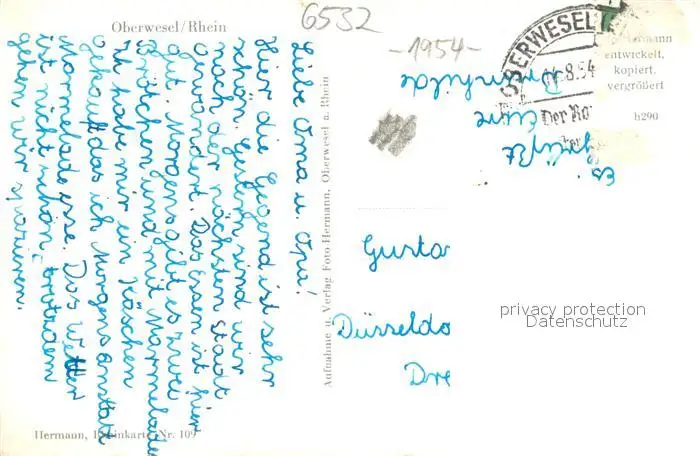 Oberwesel/Rhein
6532
-1954-
OBERWESEL
.8.54
Hermann
entwickelt,
kopiert.
vergrößert
h290
Liebe Oma u. Opa!
Hier die Gegend ist sehr
schön. Gestern sind wir
nach der nächsten Stadt
gewandert. Das Essen ist hier
gut. Morgens gibt es zwei
Brötchen und mit Marmelade
Ich habe mir ein Käschen
gekauft das ich Morgens anstatt
Marmelade esse. Das Wetter
ist nicht schön, trotzdem
gehen wir spazieren.
Es
grüßt
Eure
Brunhilde
Aufnahme u. Verlag Foto-Hermann, Oberwesel a. Rhein
Gusta
Düsseldo
Dre
privacy protection
Datenschutz
Hermann, Rheinkarte Nr. 109